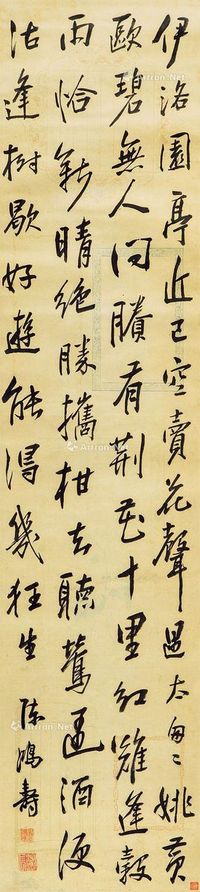 伊洛園亭近已空賣花聲過太匆〻姚黃
歐碧無人問賸有荊花十里紅雖逢穀
雨恰新晴絕勝攜柑去聽鶯遇酒便
沽逢樹歇好遊能得幾狂生
陳鴻壽